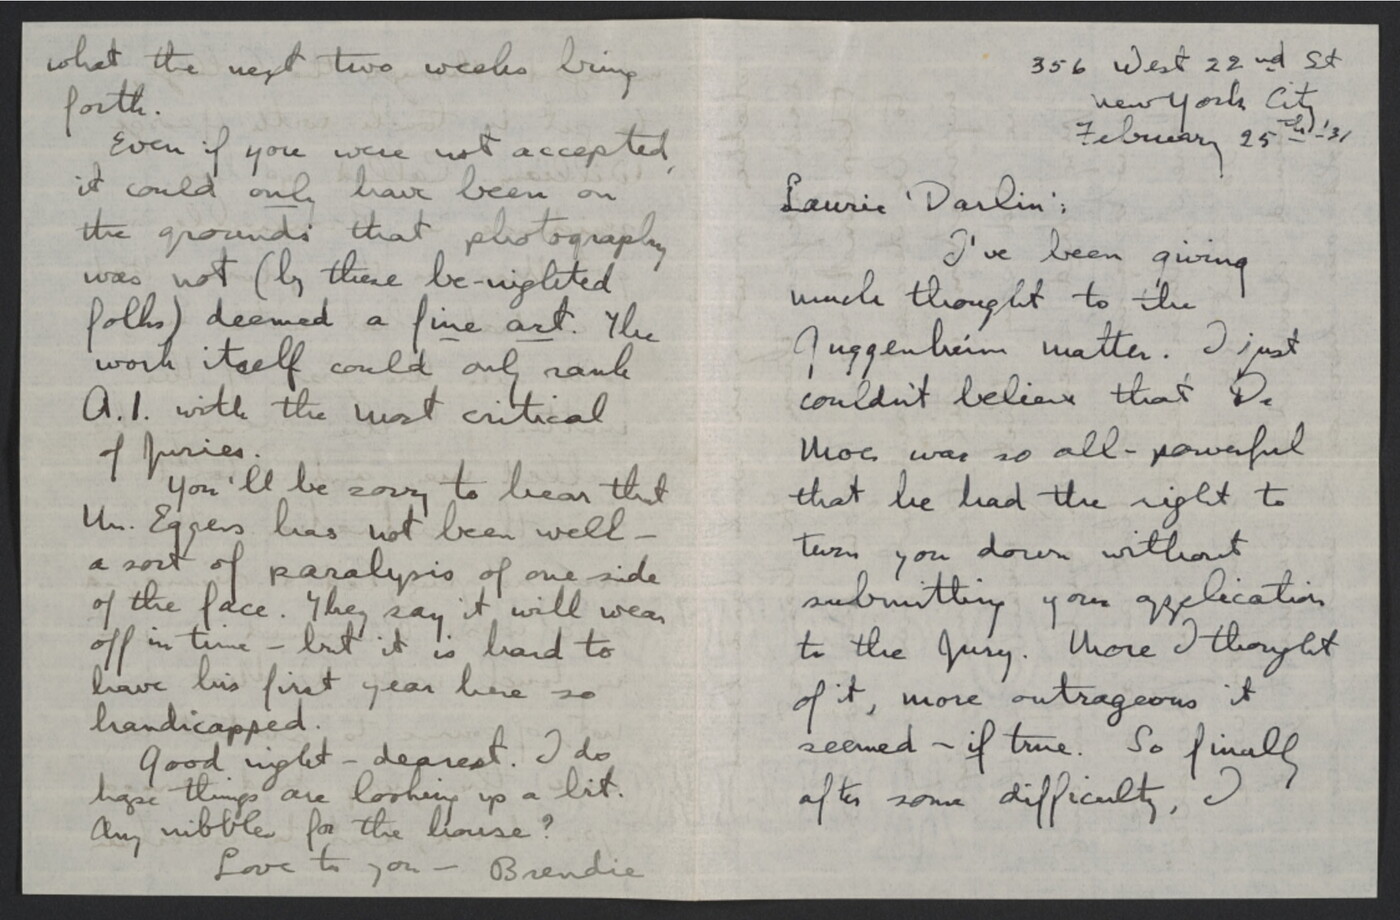 356 West 22nd St
New York City
February 25th-'31
Laurie 'Darlin':
I've been giving
much thought to the
Guggenheim matter. I just
couldn't believe that Dr
Moe was so all-powerful
that he had the right to
turn you down without
submitting your application
to the Jury. More I thought
of it, more outrageous it
seemed – if true. So finally
after some difficulty, I
what the next two weeks bring
forth.
Even if you were not accepted,
it could only have been on
the grounds that photography
was not (by these be-nighted
folks) deemed a fine art. The
work itself could only rank
A.1. with the most critical
of Juries.
You'll be sorry to hear that
Mr. Eggers has not been well –
a sort of paralysis of one side
of the face. They say it will wear
off in time – but it is hard to
have his first year here so
handicapped.
Good night – dearest. I do
hope things are looking up a bit.
Any nibbles for the house?
Love to you – Brendie